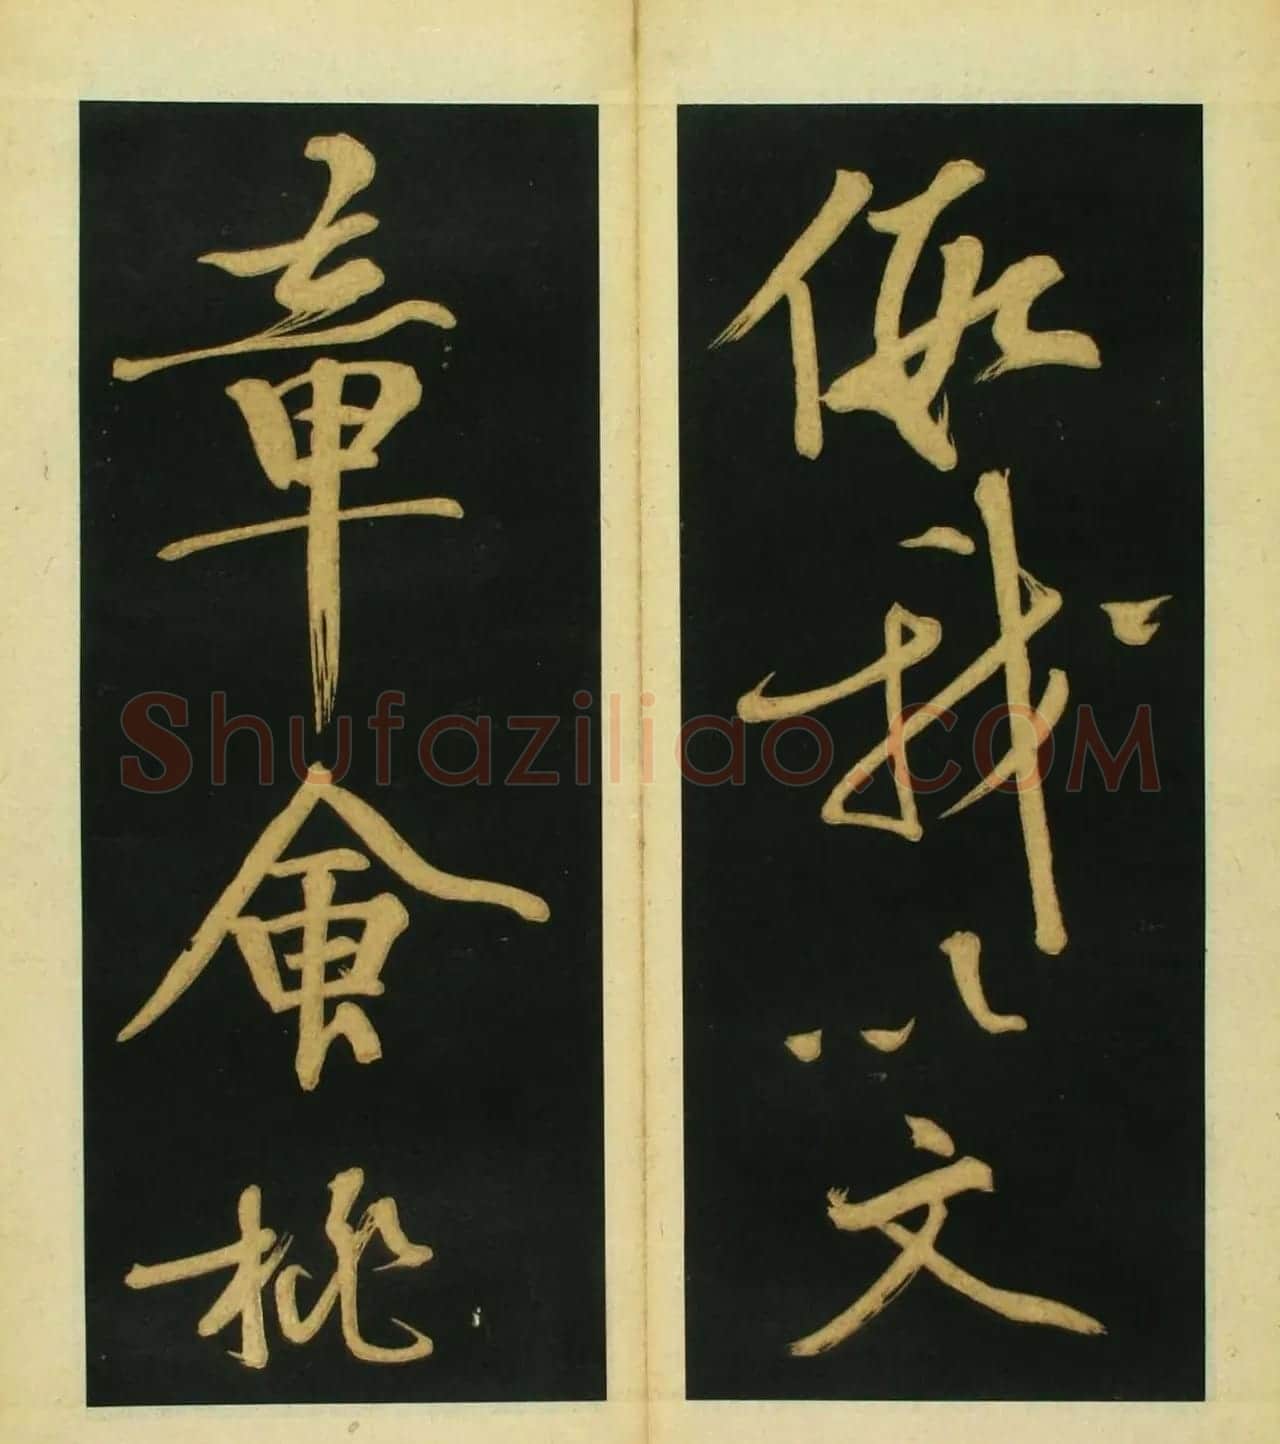 假我以文
章會桃
Shufaziliao.COM